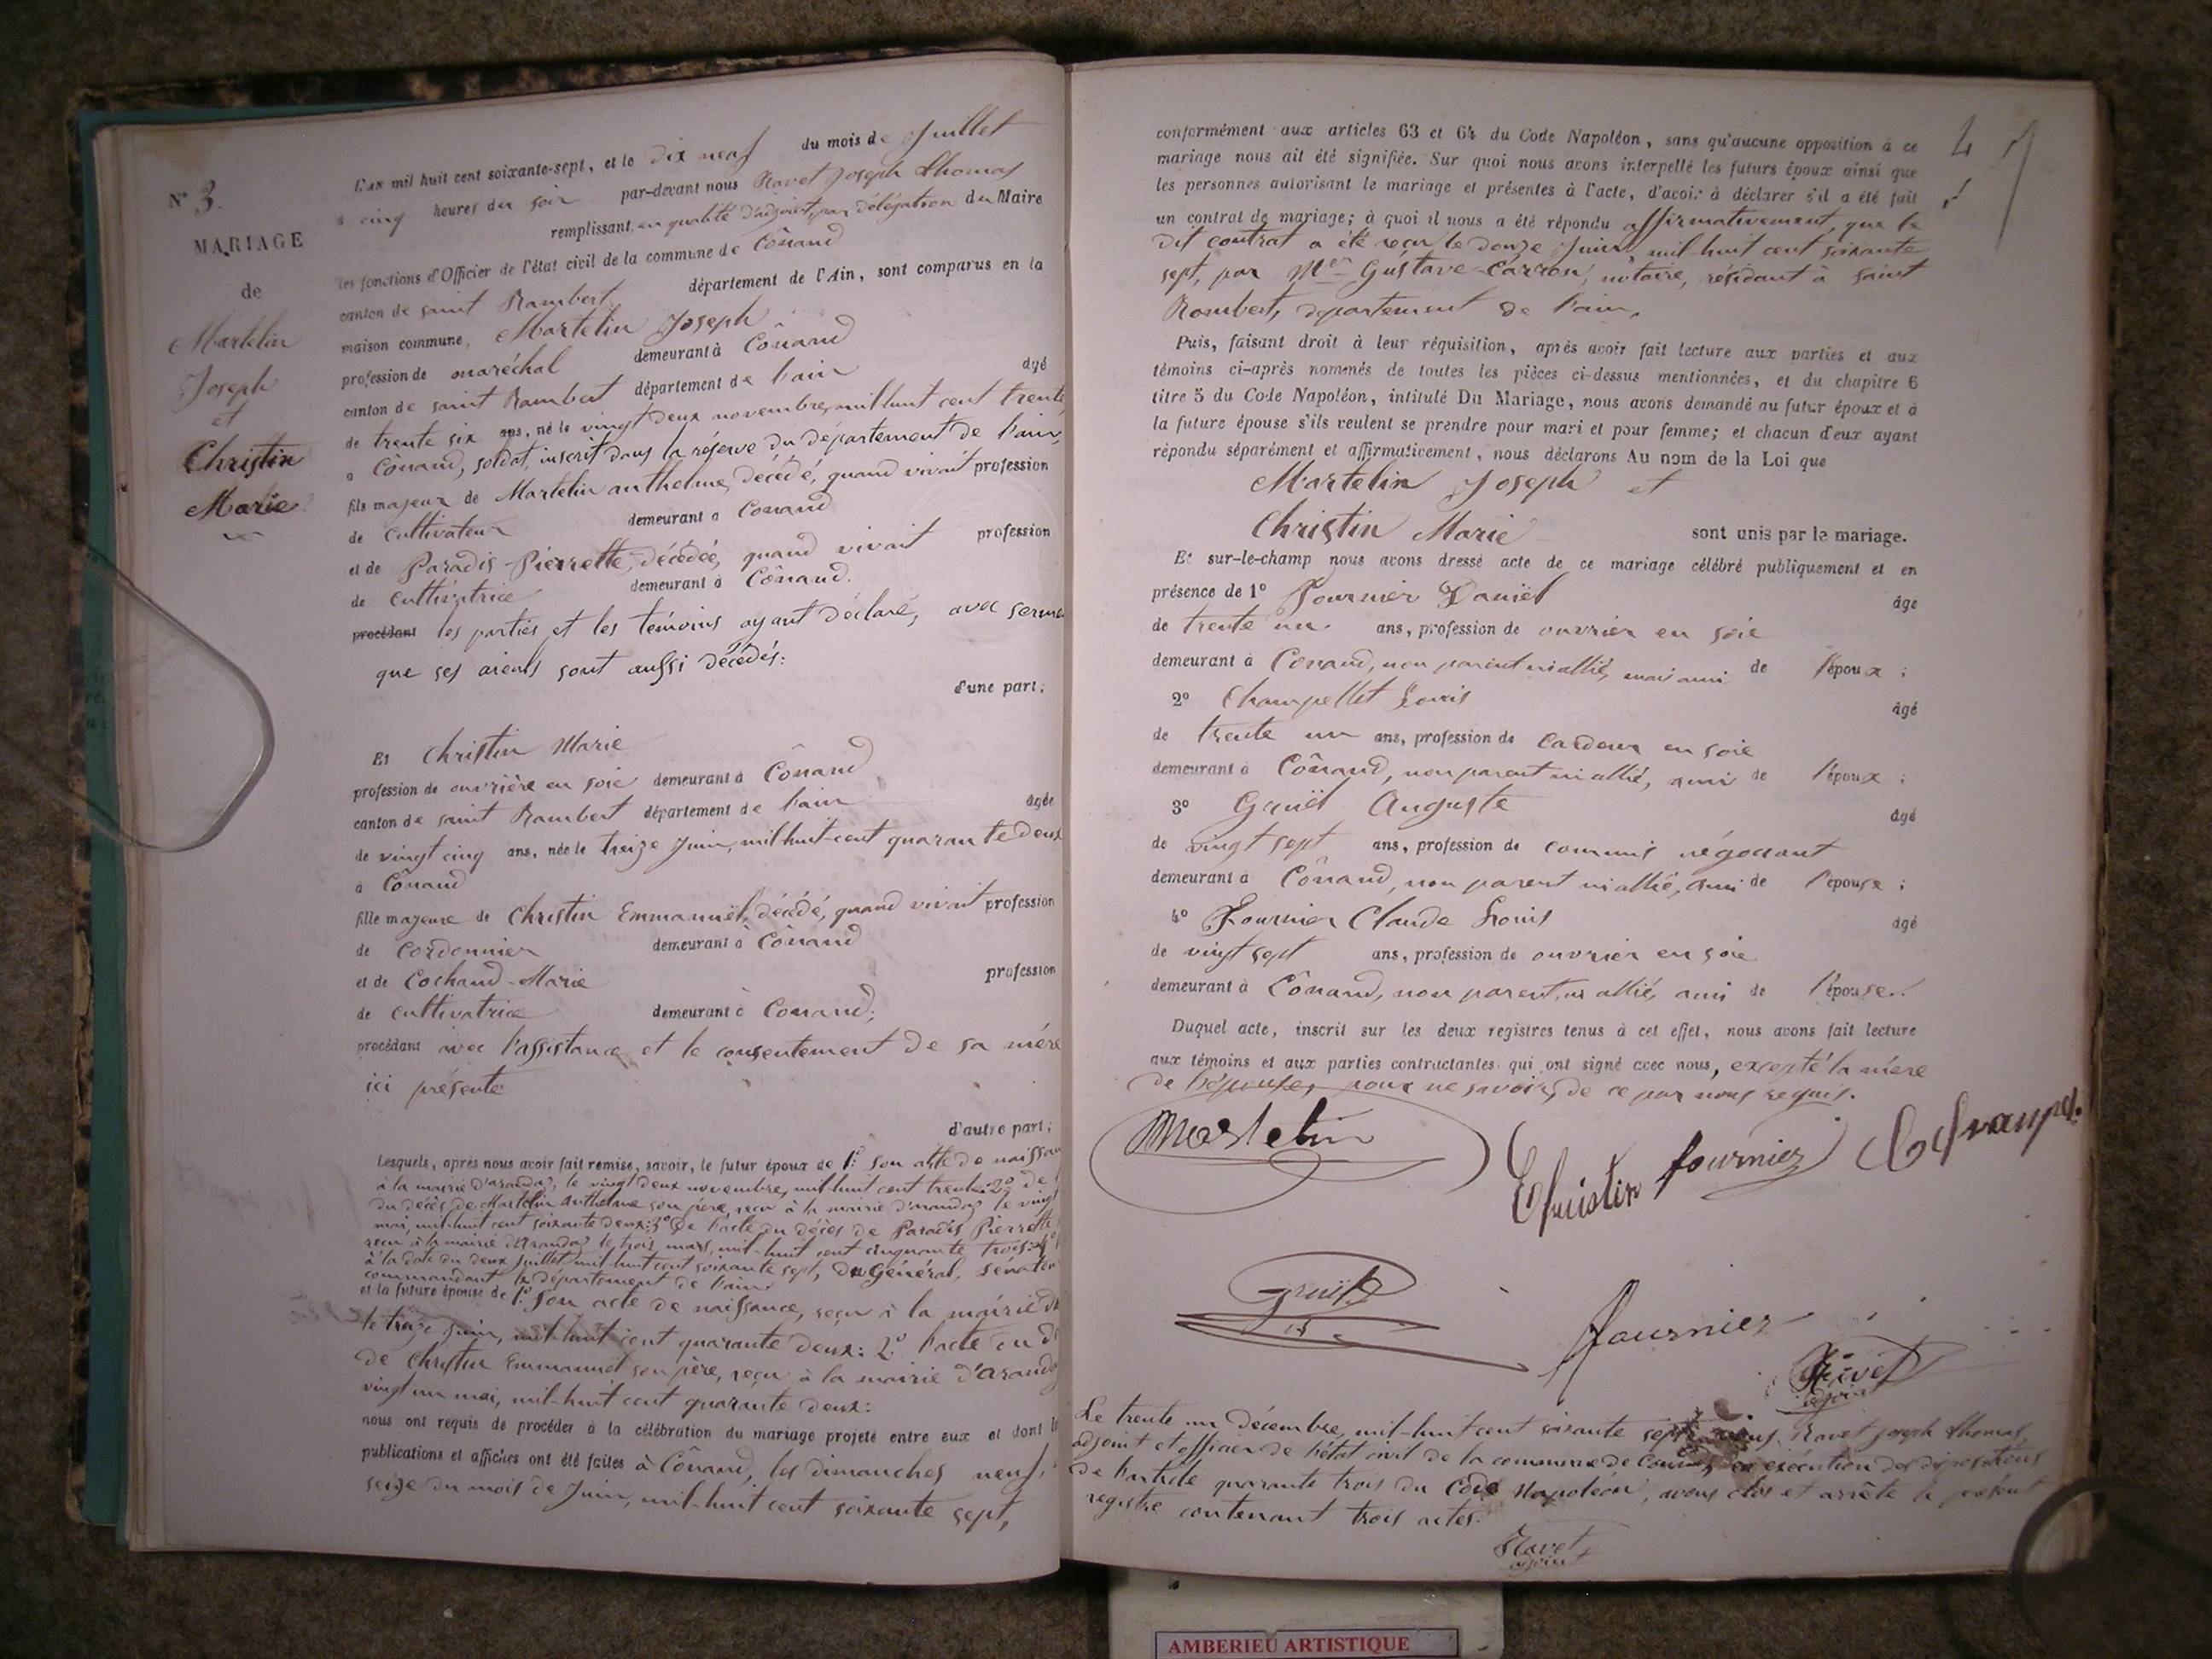 N° 3.
MARIAGE
de
Martelin
Joseph
et
Christin
Marie
L'an mil huit cent soixante-sept, et le dix neuf du mois de Juillet
à cinq heures du soir par-devant nous Ravet Joseph Thomas
remplissant, en qualité d'adjoint, par délégation du Maire
les fonctions d'Officier de l'état civil de la commune de Cônand
canton de saint Rambert département de l'Ain, sont comparus en la
maison commune, Martelin Joseph
profession de maréchal demeurant à Cônand
canton de saint Rambert département de l'ain âgé
de trente six ans, né le vingt deux novembre, mil huit cent trente
a Cônand, soldat, inscrit dans la réserve du département de l'ain,
fils majeur de Martelin anthelme, décédé, quand vivait profession
de cultivateur demeurant a Conand
et de Paradis Pierrette, décédée, quand vivait profession
de cultivatrice demeurant à Cônand.
procédant les parties et les témoins ayant déclaré, avec serme
que ses aïeuls sont aussi décédés:
d'une part;
Et Christin Marie
profession de ouvrière en soie demeurant à Cônand
canton de saint Rambert département de l'ain âgée
de vingt cinq ans, née le treize Juin, mil-huit-cent quarante deux
à Cônand
fille majeure de Christin Emmanuël, décédé, quand vivait profession
de cordonnier demeurant à Cônand
et de Cochand-Marie profession
de cultivatrice demeurant à Conand;
procédant avec l'assistance et le consentement de sa mère
ici présente
d'autre part;
Lesquels, après nous avoir fait remise, savoir, le futur époux de 1° Son acte de naissan
à la mairie d'arandas, le vingt deux novembre, mil-huit cent trente: 2° de
du décès de Martelin Anthelme son père, reçu à la mairie d'arandas le vingt
mai, mil-huit cent soixante deux: 3° De l'acte du décès de Paradis Pierrette
reçu à la mairie d'Arandas le trois mars, mil-huit cent cinquante trois: 4°
à la date du deux Juillet mil-huit cent soixante sept, du Général, Sénateu
commandant le département de l'ain.
et la future épouse de 1° Son acte de naissance, reçu à la mairie d
le treize Juin, mil-huit cent quarante deux: 2° l'acte du d
de Christin Emmanuël son père, reçu à la mairie d'arandas
vingt un mai, mil-huit cent quarante deux:
nous ont requis de procéder à la célébration du mariage projeté entre eux et dont l
publications et affiches ont été faites à Cônand, les dimanches neuf,
seize du mois de Juin, mil-huit cent soixante sept,
4
conformément aux articles 63 et 64 du Code Napoléon, sans qu'aucune opposition à ce
mariage nous ait été signifiée. Sur quoi nous avons interpellé les futurs époux ainsi que
les personnes autorisant le mariage et présentes à l'acte, d'avoir à déclarer s'il a été fait
un contrat de mariage; à quoi il nous a été répondu affirmativement, que le
dit contrat a été reçu le douze Juin, mil-huit cent soixante
sept, par Me Gustave-Carron, notaire, résidant à saint
Rambert, departement de l'ain.
Puis, faisant droit à leur réquisition, après avoir fait lecture aux parties et aux
témoins ci-après nommés de toutes les pièces ci-dessus mentionnées, et du chapitre 6
titre 5 du Code Napoléon, intitulé Du Mariage, nous avons demandé au futur époux et à
la future épouse s'ils veulent se prendre pour mari et pour femme; et chacun d'eux ayant
répondu séparément et affirmativement, nous déclarons Au nom de la Loi que
Martelin Joseph et
Christin Marie sont unis par le mariage.
Et sur-le-champ nous avons dressé acte de ce mariage célébré publiquement et en
présence de 1° Fournier Daniël âgé
de trente un ans, profession de ouvrier en soie
demeurant à Conand, non parent ni allié, mais ami de l'époux;
2° Champellet Louis âgé
de trente un ans, profession de cardeur en soie
demeurant à Cônand, non parent ni allié, ami de l'époux;
3° Gruël Auguste âgé
de vingt sept ans, profession de commis négociant
demeurant à Cônand, non parent ni allié, ami de l'épouse;
4° Fournier Claude Louis âgé
de vingt sept ans, profession de ouvrier en soie
demeurant à Cônand, non parent, ni allié, ami de l'épouse.
Duquel acte, inscrit sur les deux registres tenus à cet effet, nous avons fait lecture
aux témoins et aux parties contractantes qui ont signé avec nous, excepté la mère
de l'épouse, pour ne savoir, de ce par nous requis.
Martelin
Christin fournier
Fournier
Ravet
adjoint
Le trente un décembre, mil-huit cent soixante sept nous Ravet Joseph Thomas,
adjoint et officier de l'état civil de la commune de Conand, en exécution des dispositions
de l'article quarante trois du Code Napoléon, avons clos et arrêté le présent
registre contenant trois actes.
Ravet
adjoint
AMBERIEU ARTISTIQUE